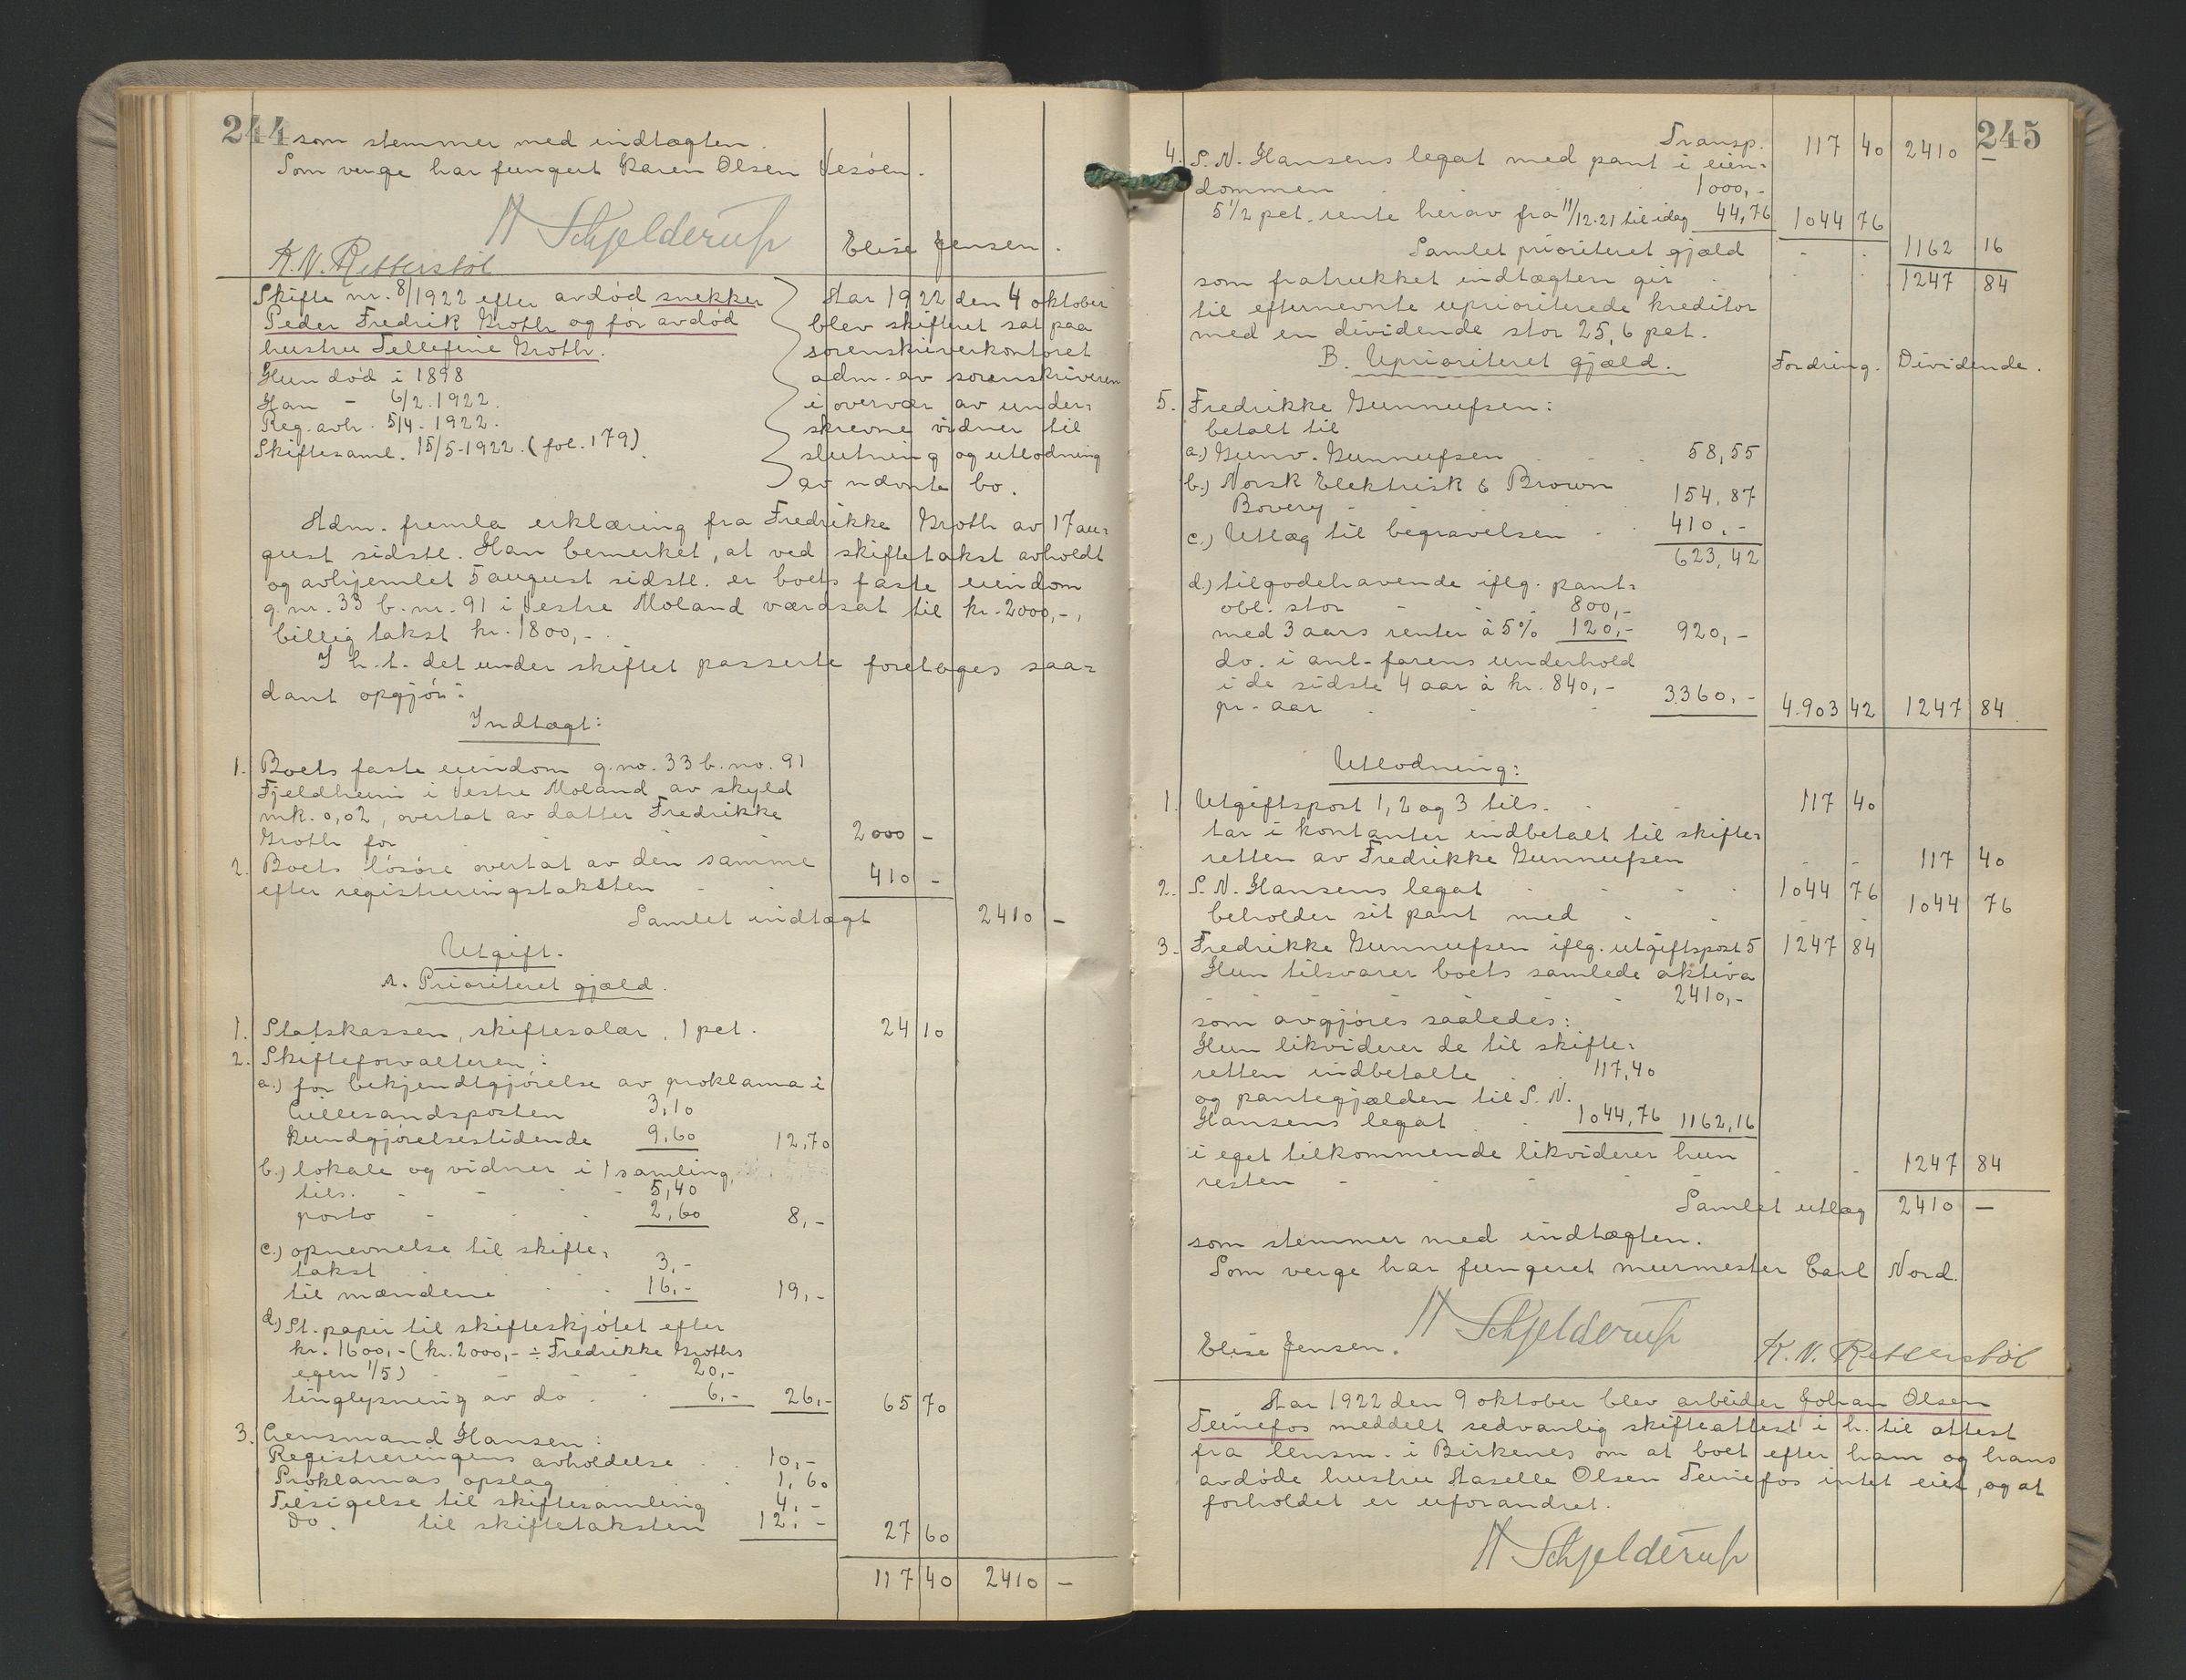 244
som stemmer med indtægten.
Som verge har fungert Karen Olsen Vesöen.
H Schjelderup
K. N. Rettersböl
Elise Jensen.
Skifte nr. 8/1922 efter avdöd snekker
Peder Fredrik Groth og för avdöd
hustru Tellefine Groth.
Hun död i 1898
Han - 6/2.1922.
Reg. avh. 5/4. 1922.
Skiftesaml. 15/5-1922. (fol. 179).
Aar 1922 den 4 oktober
blev skifteret sat paa
sorenskriverkontoret
adm. av sorenskriveren
i overvær av under=
skrevne vidner til
slutning og utlodning
av nævnte bo.
Adm. fremla erklæring fra Fredrikke Groth av 17 au=
gust sidstl. Han bemerket, at ved skiftetakst avholdt
og avhjemlet 5 august sidstl. er boets faste eiendom
g.nr. 33 b.nr. 91 i Vestre Moland værdsat til kr. 2000,-,
billig takst kr. 1800,-.
I h.t. det under skiftet passerte foretages saa=
dant opgjör:
Indtægt:
1. Boets faste eiendom g.no. 33 b.no. 91
Fjeldheim i Vestre Moland av skyld
mk. 0,02, overtat av datter Fredrikke
Groth for 2000 -
2. Boets lösöre overtat av den samme
efter registreringstaksten - - 410 -
Samlet indtægt 2410 -
Utgift.
A. Prioriteret gjæld.
1. Statskassen, skiftesalær, 1 pct. 24 10
2. Skifteforvalteren:
a.) for bekjendtgjörelse av proklama i
Lillesandsposten 3,10
Kundgjörelsestidende 9,60 12,70
b.) lokale og vidner i 1 samling,
tils. - - - - 5,40
porto - - - 2,60 8,-
c.) opnevnelse til skifte=
takst . . . 3,-
til mændene . . 16,- 19,-
d.) St. papir til skifteskjötet efter
kr. 1600,- (kr. 2000,- ÷ Fredrikke Groths
egen 1/5) - - - - 20,-
tinglysning av do . . 6,- 26,- 65 70
3. Lensmand Hansen:
Registreringens avholdelse . . 10,-
Proklamas opslag . . . 1,60
Tilsigelse til skiftesamling 4,-
Do. til skiftetaksten 12,- 27 60
117 40 2410 -
245
Transp. 117 40 2410 -
4. S. N. Hansens legat med pant i eien=
dommen . . . . 1000,-
5 1/2 pct. rente herav fra 11/12.21 til idag 44,76 1044 76
Samlet prioriteret gjæld - - 1162 16
som fratrukket indtægten gir . . . 1247 84
til efternevnte uprioriterede kreditor
med en dividende stor 25,6 pct.
B. Uprioriteret gjæld. Fordring. Dividende.
5. Fredrikke Gunnufsen:
betalt til
a.) Gunv. Gunnufsen . . . 58,55
b.) Norsk Elektrisk & Brown
Bovery - - - 154,87
c.) Utlæg til begravelsen - . 410,-
623,42
d.) tilgodehavende iflg. pant=
obl. stor - - - 800,-
med 3 aars renter à 5% 120,- 920,-
do. i anl. farens underhold
i de sidste 4 aar à kr. 840,-
pr. aar . . . 3360,- 4.903 42 1247 84
Utlodning:
1. Utgiftspost 1, 2 og 3 tils. . . 117 40
tar i kontanter indbetalt til skifte=
retten av Fredrikke Gunnufsen - - 117 40
2. S. N. Hansens legat - - - - 1044 76
beholder sit pant med - - - - 1044 76
3. Fredrikke Gunnufsen iflg. utgiftspost 5 1247 84
Hun tilsvarer boets samlede aktiva
- - - - 2410,-
som avgjöres saaledes:
Hun likviderer de til skifte=
retten indbetalte . . 117,40
og pantegjælden til S. N.
Hansens legat . . 1044,76 1162,16
i eget tilkommende likviderer hun
resten - - - - - - 1247 84
Samlet utlæg 2410 -
som stemmer med indtægten.
Som verge har fungeret murmester Carl Nord.
H Schjelderup
Elise Jensen. K. N. Rettersböl
Aar 1922 den 9 oktober blev arbeider Johan Olsen
Teinefos meddelt sedvanlig skifteattest i h. til attest
fra lensm. i Birkenes om at boet efter ham og hans
avdöde hustru Aaselle Olsen Teinefos intet eiet, og at
forholdet er uforandret.
H Schjelderup